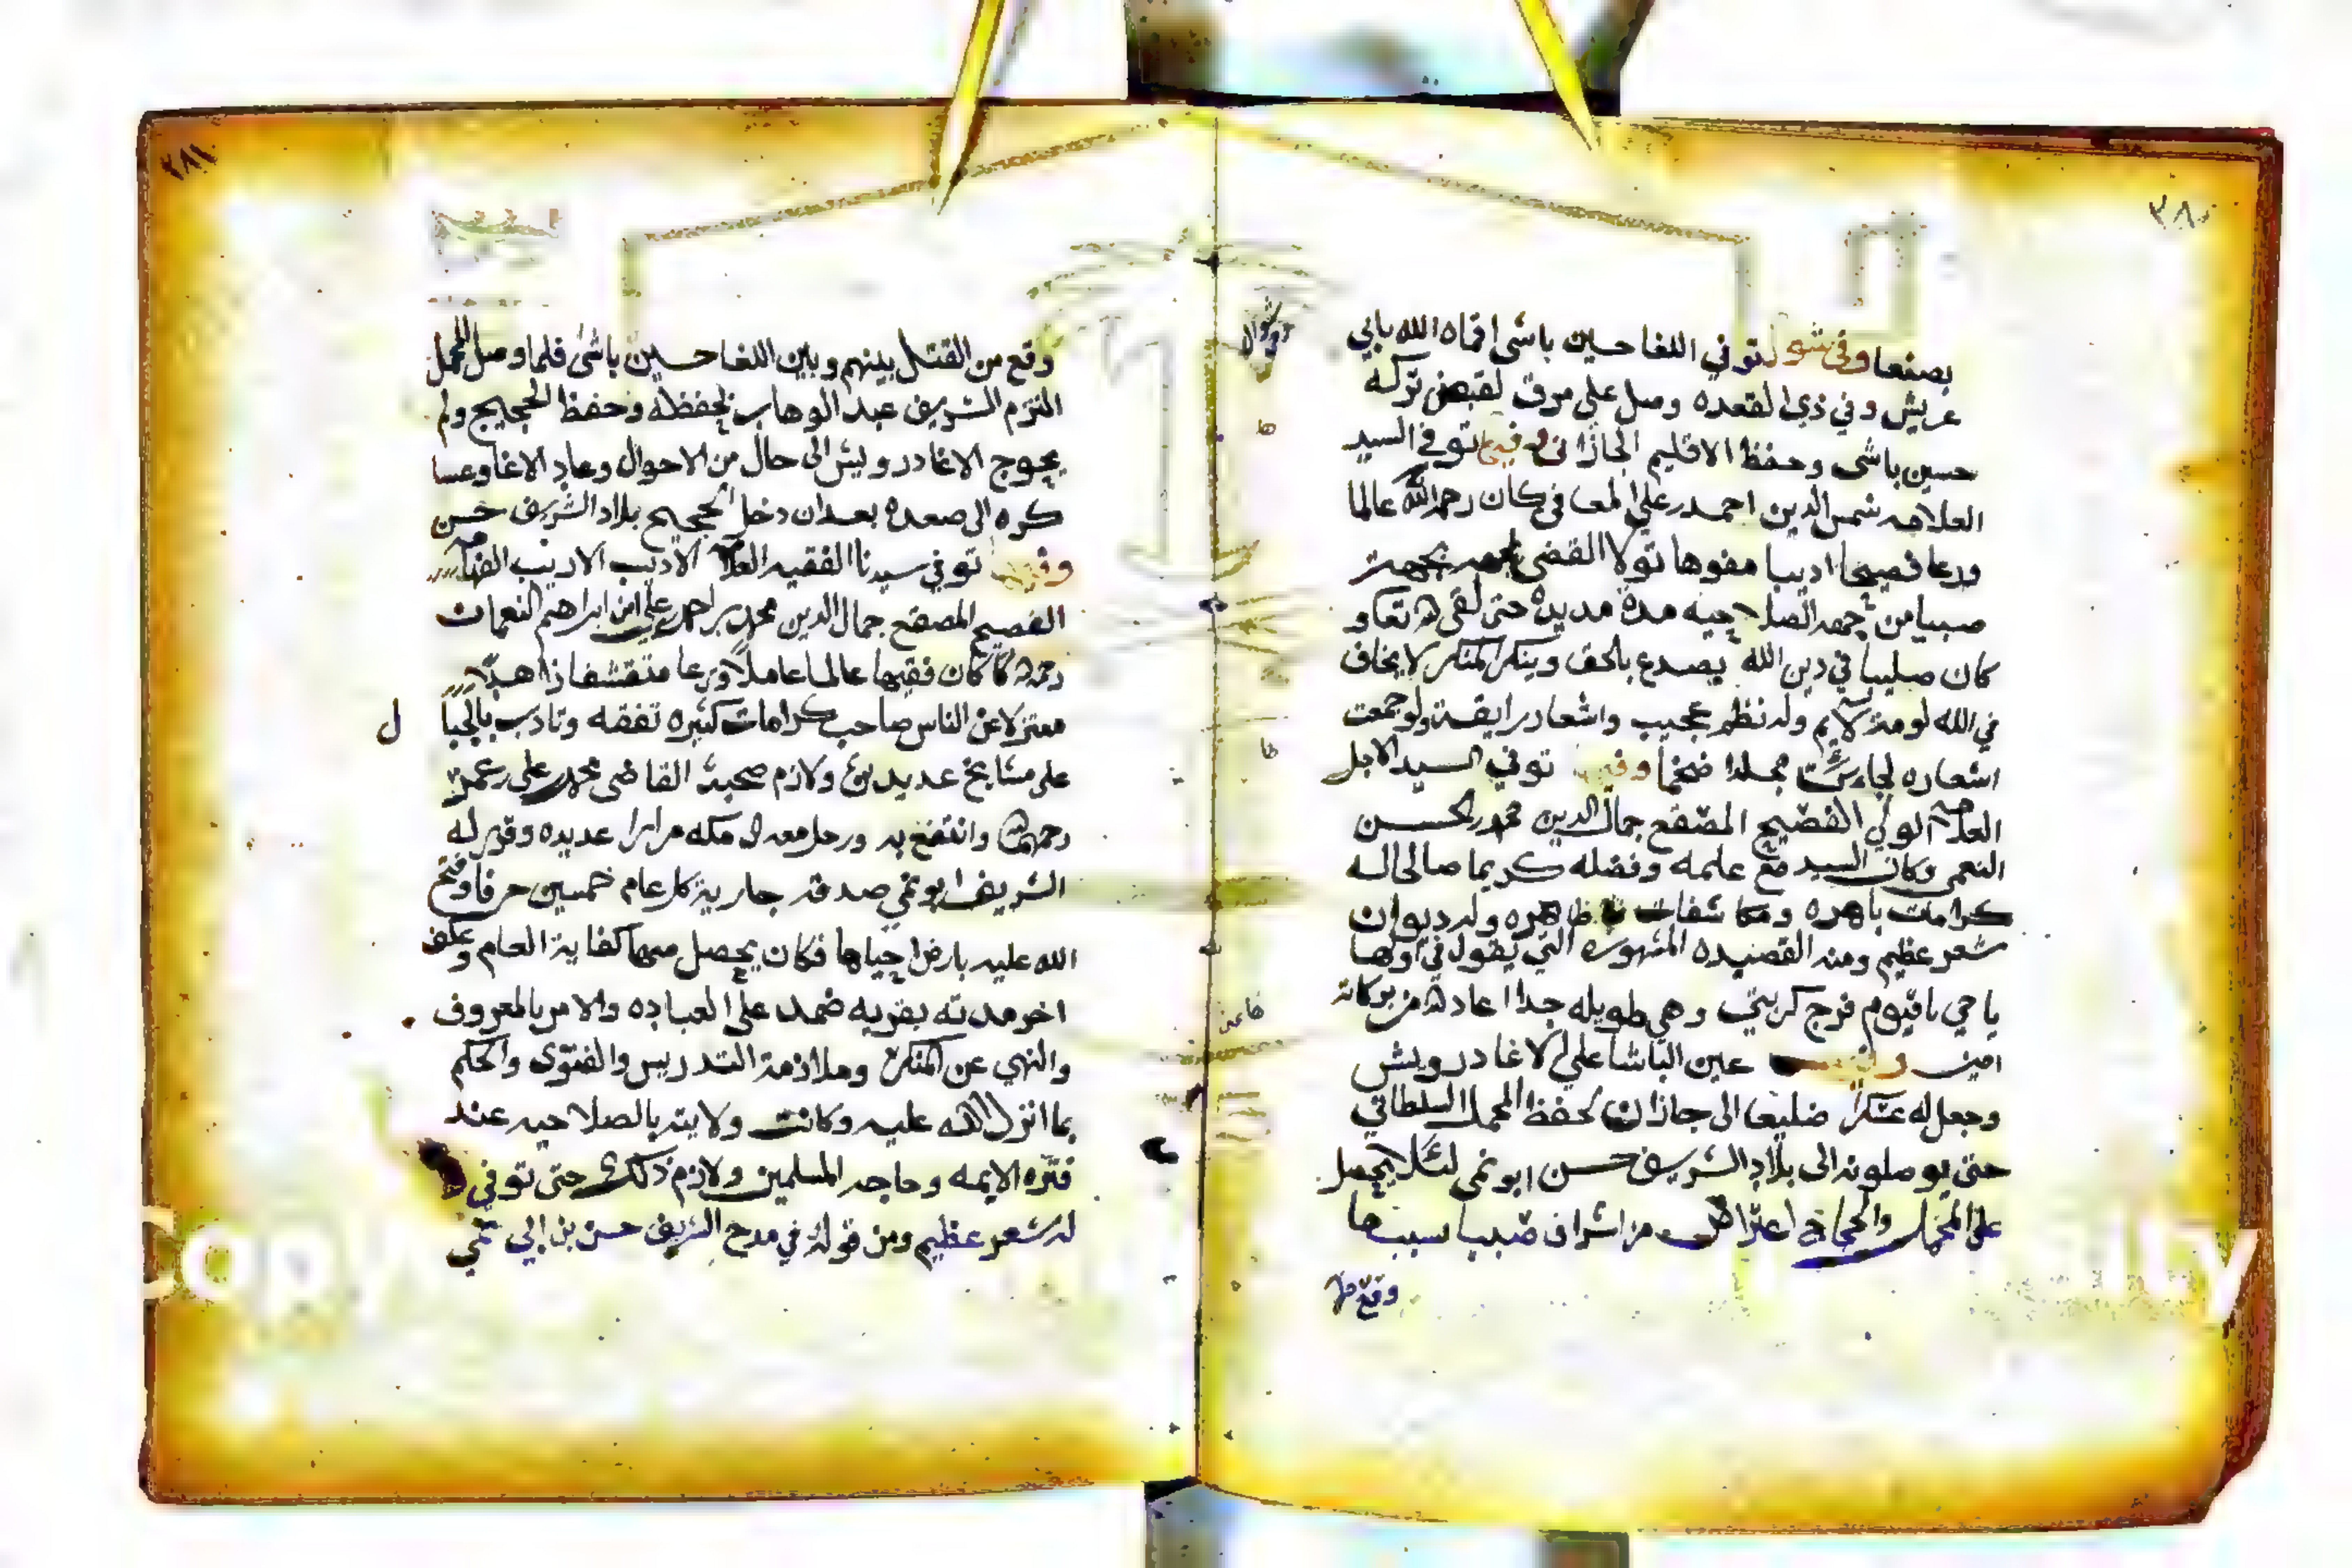 ٣٨٠
بصنعا وفي شوال توفي اللغا حسين باشى اقماه الله بابي
عريش وفي ذي القعده وصل علي مروق لقبض تركه
حسين باشى وحفظ الاقليم الجازاني وفيها توفي السيد
العلامه شمس الدين احمد بن علي المعافى كان رحمه الله عالما
ورعا فصيحا اديبا مفوها تولا القضى بجهة
صبيا من جهة الصلاحيه مدة مديدة حتى لقى الله تعا و
كان صليبا في دين الله يصدع بالحق وينكر المنكر لا يخاف
في الله لومة لايم وله نظم عجيب واشعار رايقة ولو جمعت
اشعاره لجاءت مجلدا ضخما وفيها توفي السيد الاجل
العلامه الولي الفصيح المصقع جمال الدين محمد بن الحسن
النعمي وكان السيد مع علمه وفضله كريما صالحا له
كرامات باهره ومكاشفات ظاهره وله ديوان
شعر عظيم ومنه القصيده المشهوره التي يقول في اولها
يا حي يا قيوم فرج كربتي وهي طويله جدا اعاد الله من بركاته
امين وفيها عين الباشا علي الاغا درويش
وجعل له عسكرا ضليعا الى جازان لحفظ المحمل السلطاني
حتى يوصلونه الى بلاد الشريف حسن ابو نمي لئلا يحصل
على المحمل والحجاج اعتراض من اشراف صبيا بسبب ما
وقع من
وشوال
٣٨١
وقع من القتل بينهم وبين اللغا حسين باشى فلما وصل المحمل
التزم الشريف عبد الوهاب بحفظه وحفظ الحجيج ولم
يحوج الاغا درويش الى حال من الاحوال وعاد الاغا وعسا
كره الى صعده بعد ان دخل الحجيج بلاد الشريف حسن
وفيها توفي سيدنا الفقيه العلامه الاديب الاريب الفهامه
الفصيح المصقع جمال الدين محمد بن احمد علي ابن ابراهيم النعمان
رحمه الله كان فقيها عالما عاملا ورعا متقشفا زاهدا
معتزلا عن الناس صاحب كرامات كثيره تفقه وتادب بالجبا
ل
على مشايخ عديدين ولازم صحبة القاضى محمد بن علي بن عمر
رحمهما الله وانتفع به ورحل معه الى مكه مرارا عديده وقرر له
الشريف ابو نمي صدقه جارية كل عام خمسين حرفا وفتح
الله عليه بارض احياها فكان يحصل منها كفاية العام وعكف
اخر مدته بقريه ضمد على العباده والامر بالمعروف
والنهي عن المنكر وملازمة التدريس والفتوى والحكم
بما انزل الله عليه وكانت ولايته بالصلاحيه عند
فتره الايمه وحاجه المسلمين ولازم ذلك حتى توفي
له شعر عظيم ومن قوله في مدح الشريف حسن بن ابي نمي